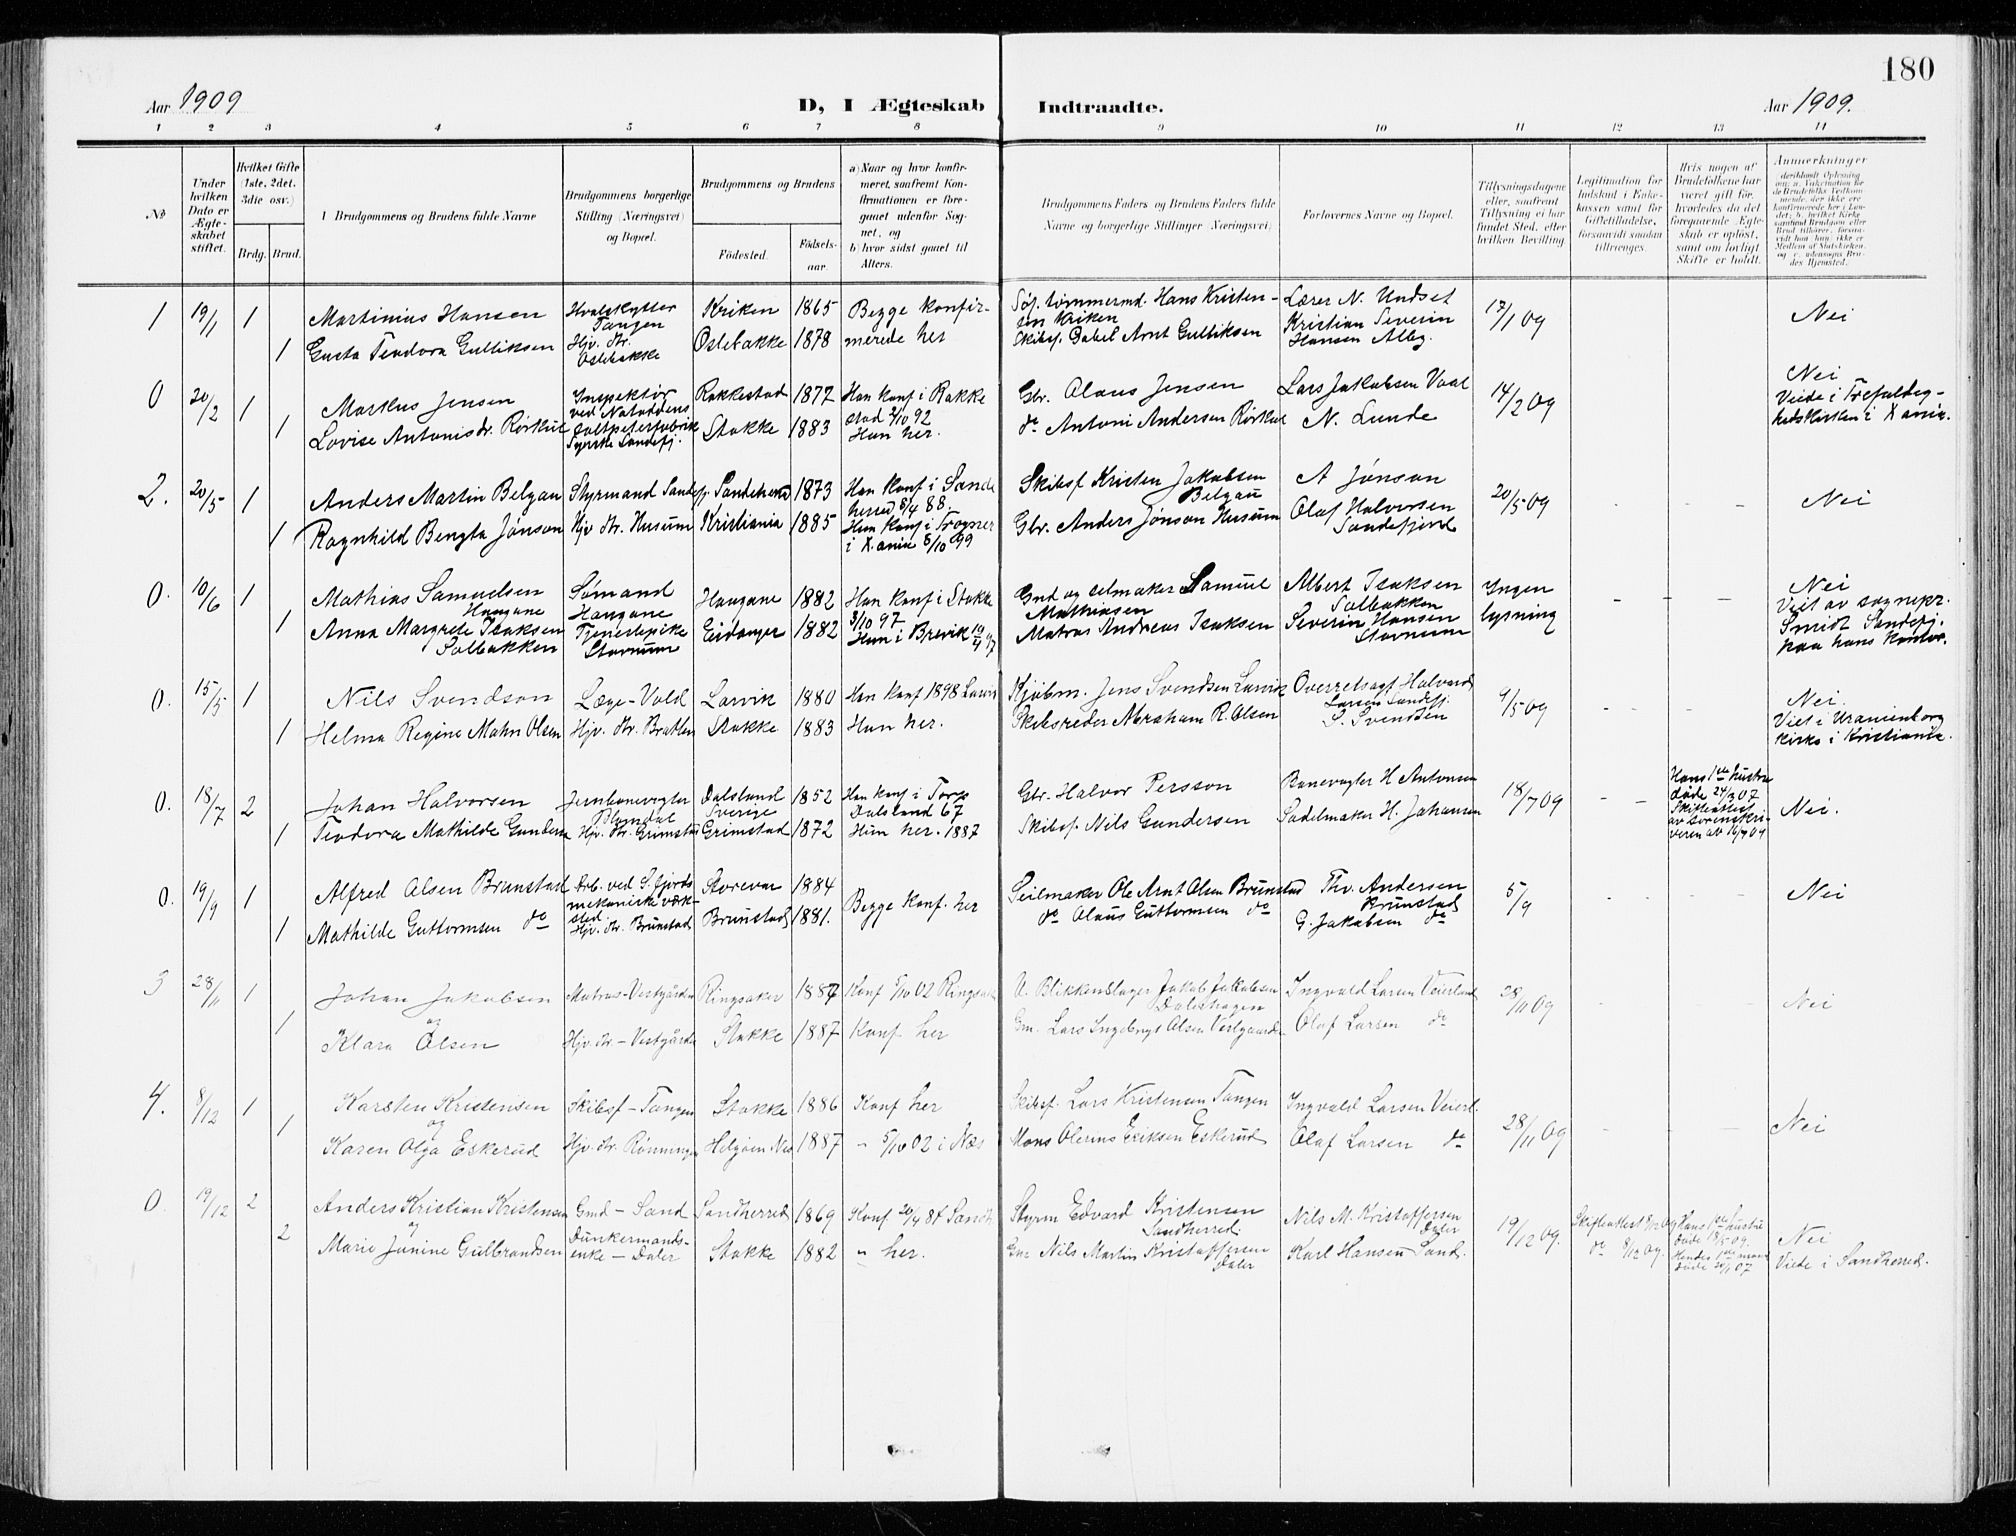 180
Aar 1909
D, I Ægteskab Indtraadte.
Aar 1909.
1 2 3 4 5 6 7 8 9 10 11 12 13 14
No
Under hvilken Dato er Ægteskabet stiftet.
Hvilket Gifte (1ste, 2det, 3die osv.)
Brdg. Brud.
Brudgommens og Brudens fulde Navne
Brudgommens borgerlige Stilling (Næringsvei) og Bopæl.
Brudgommens og Brudens
Födested.
Födselsaar.
a) Naar og hvor konfirmeret, saafremt Konfirmationen er foregaaet udenfor Sognet, og
b) hvor sidst gaaet til Alters.
Brudgommens Faders og Brudens Faders fulde Navne og borgerlige Stillinger Næringsvei.
Forlovernes Navne og Bopæl.
Tillysningsdagene eller, saafremt Tillysning ei har fundet Sted, efter hvilken Bevilling.
Legitimation for Indskud i Enkekassen samt for Giftetilladelse, forsaavidt saadan tiltrænges.
Hvis nogen af Brudefolkene har været gift før, hvorledes da det foregaaende Ægteskab er oplöst, samt om lovligt Skifte er holdt.
Anmerkninger
1 19/1 1 Martinius Hansen Hvalskytter Tangen Kriken 1865 Begge konfir- Søf. tømmermd. Hans Kristen- Lærer N. Undset 17/1 09 Nei
sen Kriken
1 Gusta Teodora Gulliksen Hjv. dtr. Oslebakke Oslebakke 1878 merede her Skibsf. Arnt Gulliksen Kristian Severin Hansen Alby.
0 20/2 1 Markus Jensen Inspektør ved Notoddens saltpeterfabrik Rakkestad 1877 Han konf i Rakke stad 2/10 92 Gbr. Olaus Jensen Lars Jakobsen Vaal 14/2 09 Nei
1 Lovise Antonisdr. Rørkul Syerske Sandefj. Stokke 1883 Hun her. do Antoni Andersen Rørkul N. Lunde Viede i Trefoldig-
hedskirken i Xania.
2. 20/5 1 Anders Martin Belgau Styrmand Sandefj. Sandeherred 1873 Han konf i Sande herred 8/4 88. Skibsf Kristen Jakobsen Belgau A Jønson 20/5 09 Nei
1 Ragnhild Bengta Jönson Hjv dtr. Husum Kristiania 1885 Hun konf i Frogner i X.ania 8/10 99 Gbr. Anders Jönson Husum Olaf Halvorsen Sandefjord
0. 10/6 1 Mathias Samuelsen Haugane Sømand Haugane Haugane 1882 Han konf i Stokke 3/10 97 Gmd og selmaker Samuel Mathiasen Albert Isaksen Solbakken Ingen lysning Nei
1 Anna Margrete Isaksen Solbakken Tjenestepike Stavnum Eidanger 1882 Hun i Brevik Matros Andreas Isaksen Severin Hansen Stavnum Viet av sognepr. Smidt Sandefj. paa hans kontor.
0. 15/5 1 Nils Svendson Læge-Vold Larvik 1880 Han konf 1898 Larvik Kjöbm. Jens Svendsen Larvik Overretssagf Halvard Larsen Sandefj. 9/5 09 Nei.
1 Helma Regine Mohn Olsen Hjv. dtr. Bratten Stokke 1883 Hun her. Skibsreder Abraham R. Olsen S. Svendsen Viet i Uranienborg kirke i Kristiania.
0. 18/7 2 Johan Halvorsen Jernbanevogter Dalsland Sverige 1852 Han konf i Torp Dalsland 67 Gbr. Halvor Persson Banevogter H Antonsen 18/7 09 Hans 1ste hustru døde 24/3 07 Skifteattest av sorenskriveren av 16/7 09 Nei.
1 Teodora Mathilde Gundersen Hjv. dtr. Grimstad Grimstad 1872 Hun her. 1887 Skibsf. Nils Gundersen Sadelmaker H. Johansen
0. 19/9 1 Alfred Olsen Brunstad Arb. ved S. fjords mekaniske værksted Storevar 1884 Begge konf. her Seilmaker Ole Arnt Olsen Brunstad Thv. Andersen Brunstad 5/9 Nei
1 Mathilde Guttormsen do Hjv. dtr. Brunstad Brunstad 1881. do Olaus Guttormsen do G. Jakobsen do
3 28/11 1 Johan Jakobsen Matros-Vestgården Ringsaker 1887 Konf 5/10 02 Ringsaker Blikkenslager Jakob Jakobsen Dalshagen Ingvald Larsen Veierland 28/11 09 Nei
og
1 Klara Olsen Hjv. dtr-Vestgården Stokke 1887 Konf. her Gm. Lars Ingebrigt Olsen Vestgaarden Olaf Larsen do
4. 8/12 1 Karsten Kristensen Skibsf-Tangen Stokke 1886 Konf her Skibsf. Lars Kristensen Tangen Ingvald Larsen Veierl. 28/11 09 Nei
og
1 Karen Olga Eskerud Hjv. dtr. Rønningen Helgøen Nes 1887 " 5/10 02 i Næs Mons Olerius Eriksen Eskerud Olaf Larsen do
0. 19/12 2 Anders Kristian Kristensen Gmd-Sand Sandherred 1869 Konf 20/4 84 Sandh. Styrm Edvard Kristensen Sandherred. Nils M. Kristoffersen Daler 19/12 09 Skifteattest 8/12 09 Hans 1ste hustru døde 18/5 09. Nei
og
2 Marie Janine Gulbrandsen Dunkermands-enke-Daler Stokke 1882 " her. Gm Nils Martin Kristoffersen Daler Karl Hansen Sand. do 8/12 09. Hendes 1ste mand døde 07 Viede i Sandherred.